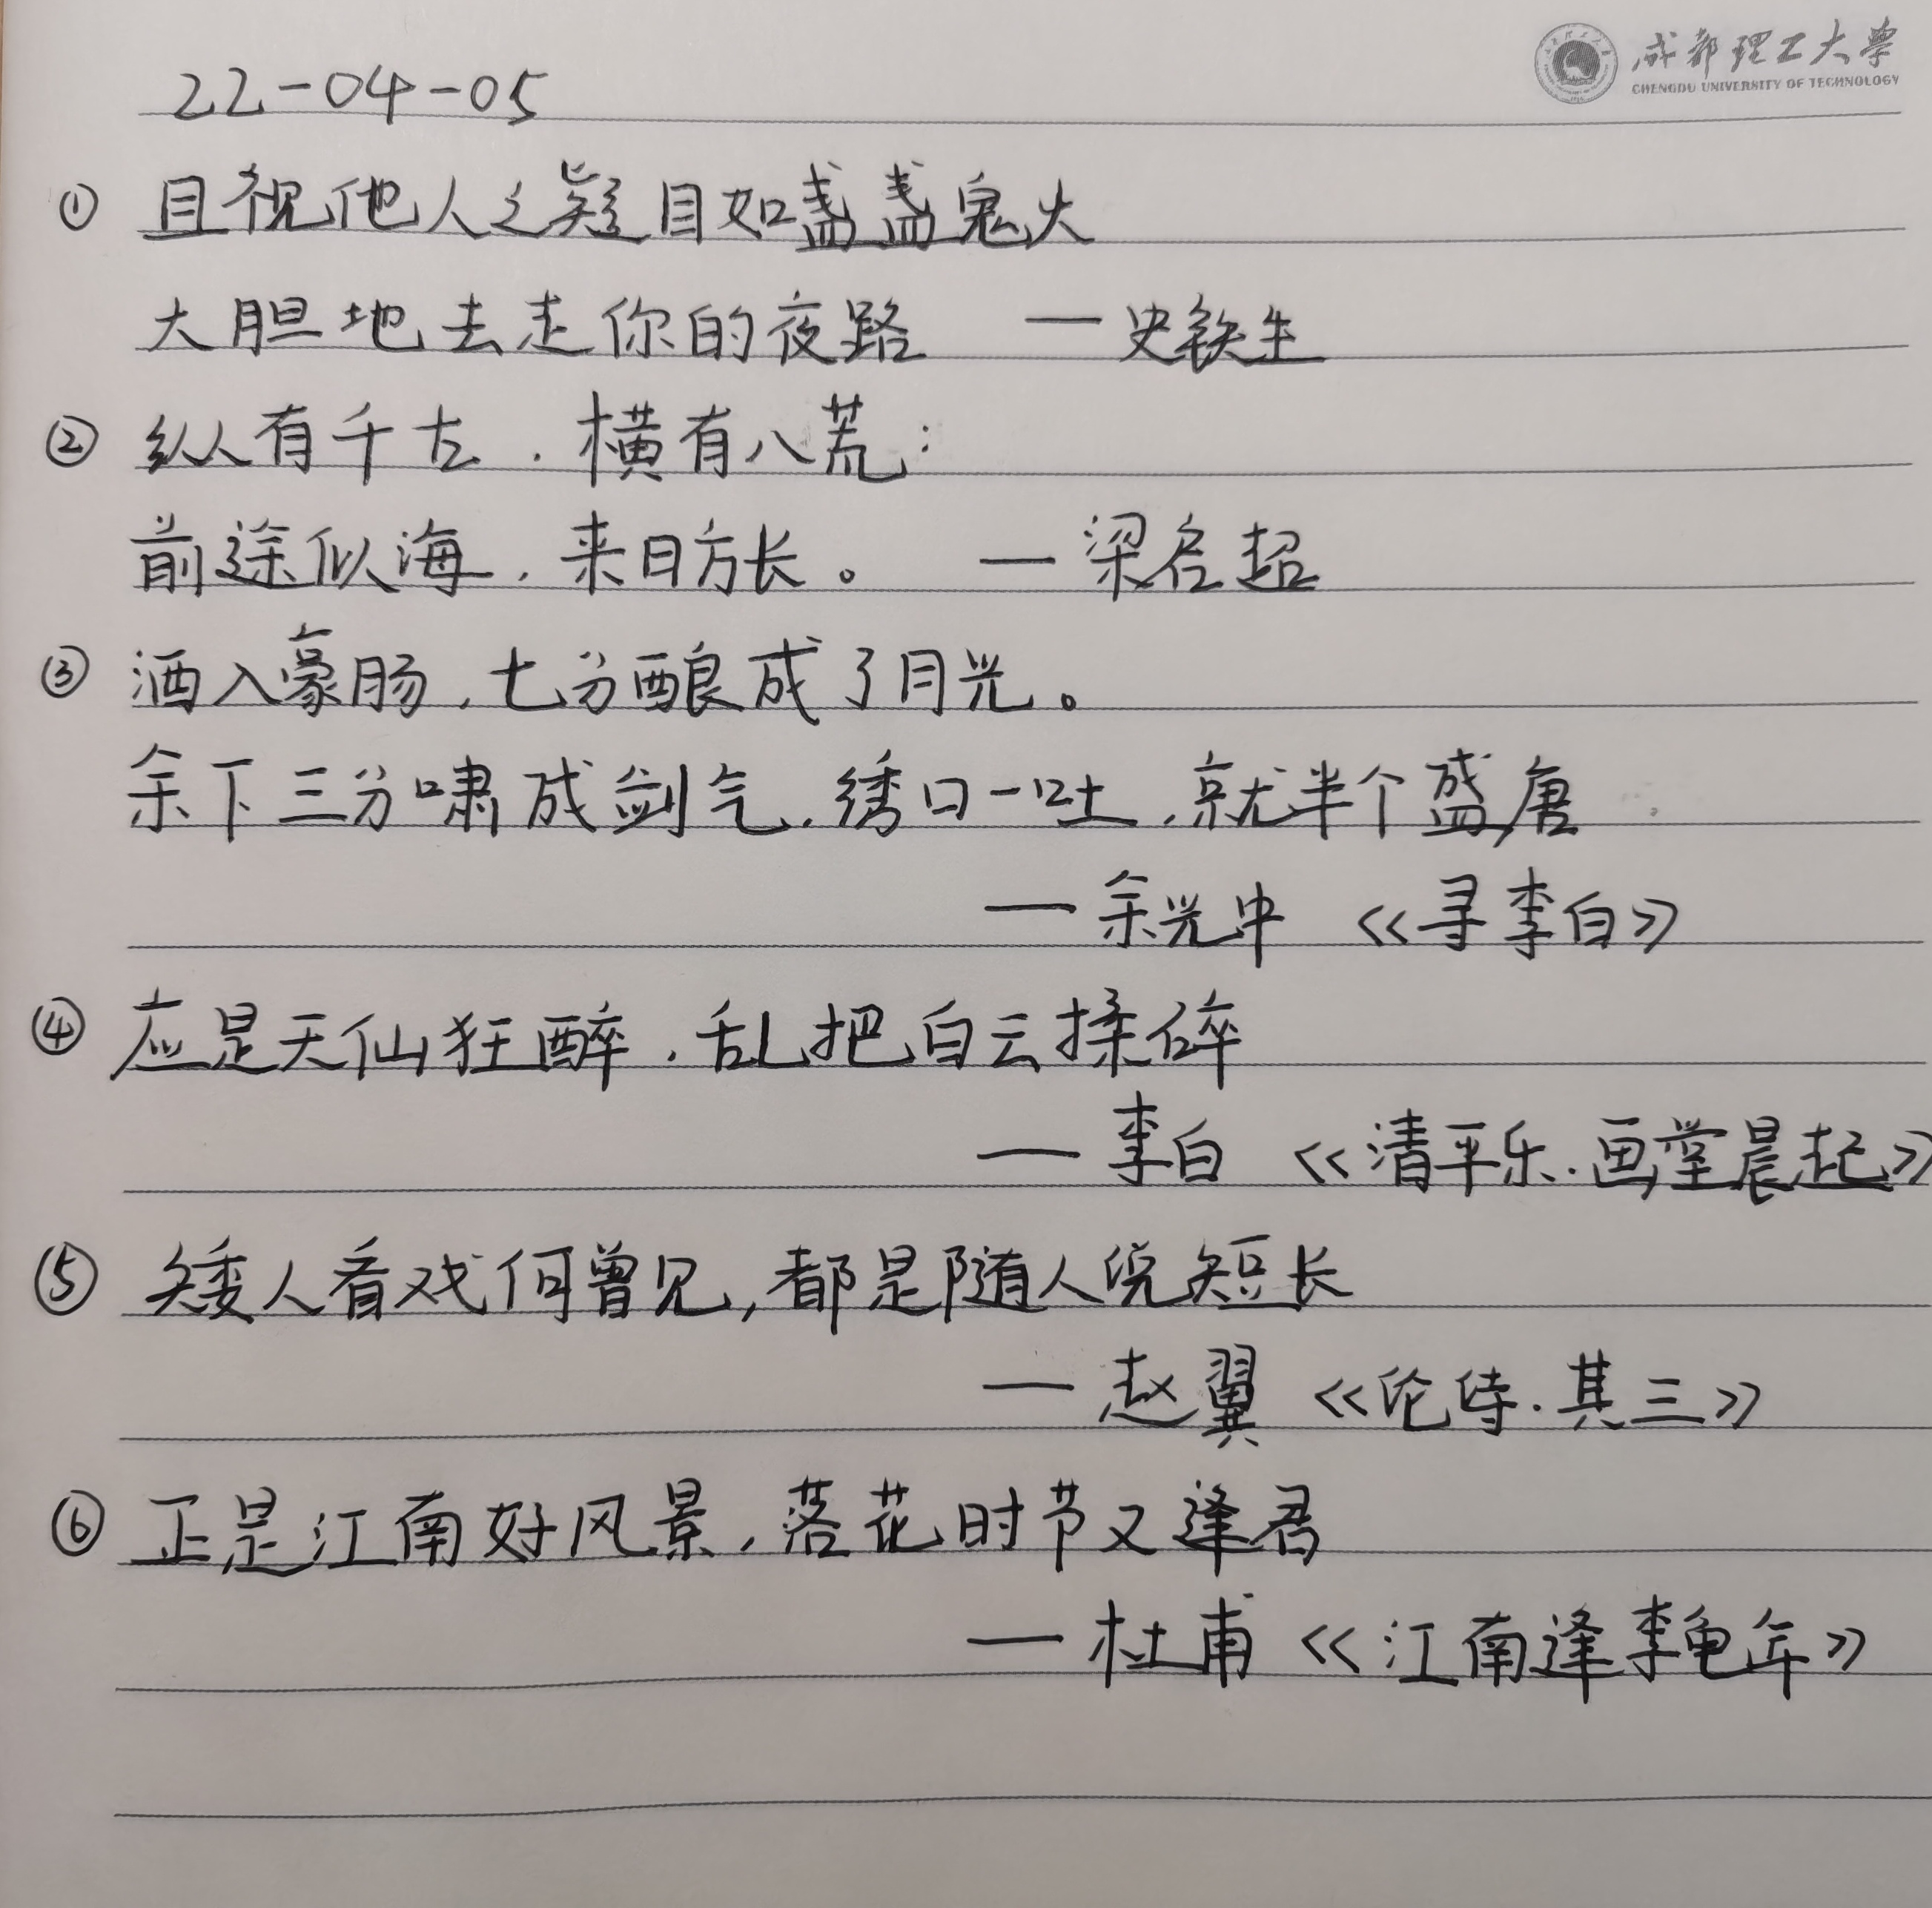 成都理工大学
CHENGDU UNIVERSITY OF TECHNOLOGY
22-04-05
① 且视他人之疑目如盏盏鬼火
大胆地去走你的夜路 — 史铁生
② 纵有千古，横有八荒：
前途似海，来日方长。 — 梁启超
③ 酒入豪肠，七分酿成了月光。
余下三分啸成剑气，绣口一吐，就半个盛唐
— 余光中 《寻李白》
④ 应是天仙狂醉，乱把白云揉碎
— 李白 《清平乐·画堂晨起》
⑤ 矮人看戏何曾见，都是随人说短长
— 赵翼 《论诗·其三》
⑥ 正是江南好风景，落花时节又逢君
— 杜甫 《江南逢李龟年》